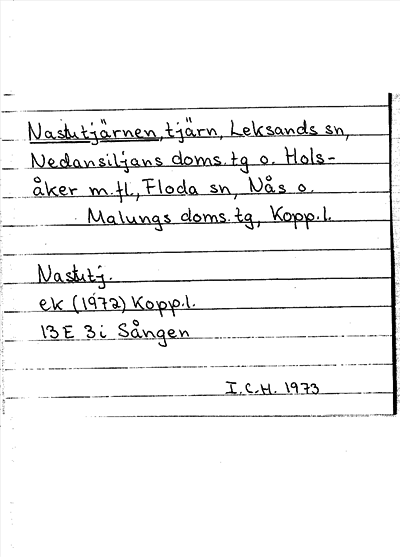 Nastutjärnen, tjärn, Leksands sn,
Nedansiljans doms.tg o. Hols-
åker m.fl., Floda sn, Nås o.
Malungs doms.tg, Kopp.l.
Nastutj.
ek (1972) Kopp.l.
13E 3i Sången
I.C.H. 1973